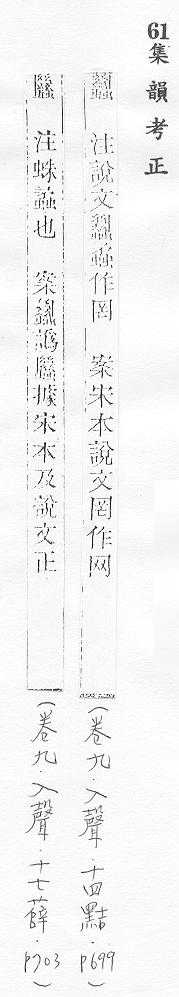 61
集韻考正
蠿 注說文蠿蟊作罔 案宋本說文罔作网 (卷九.入聲.十四黠.P699)
注蛛蟊也 案蠿譌 據宋本及說文正 (卷九.入聲.十七薛.P703)